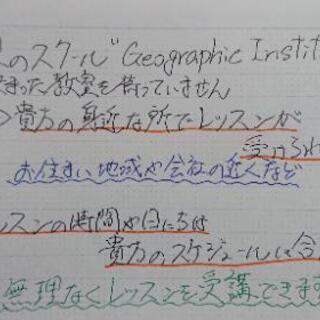 のスクール"Geographic Instit
まった教室を持っていません
貴方の身近な所でレッスンが
受けられ
お住まい地域や会社の近くなど
スンの時間や日にちは
貴方のスケジュールに合
無理なくレッスンを受講できます